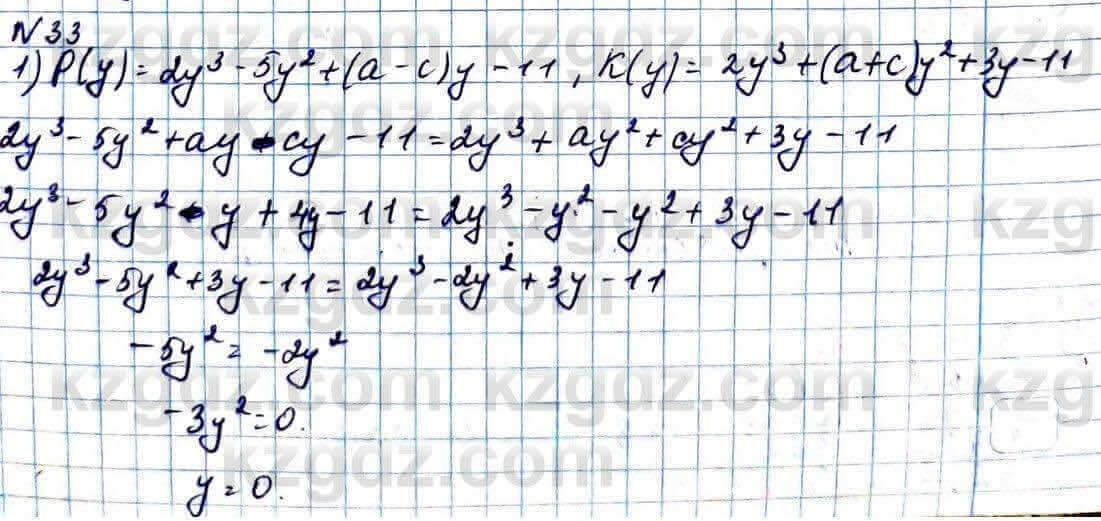 N 33
1) P(y) = 2y³ - 5y² + (a - c)y - 11 , K(y) = 2y³ + (a+c)y² + 3y - 11
2y³ - 5y² + ay - cy - 11 = 2y³ + ay² + cy² + 3y - 11
2y³ - 5y² - y + 4y - 11 = 2y³ - y² - y² + 3y - 11
2y³ - 5y² + 3y - 11 = 2y³ - 2y² + 3y - 11
- 5y² = - 2y²
- 3y² = 0.
y = 0.